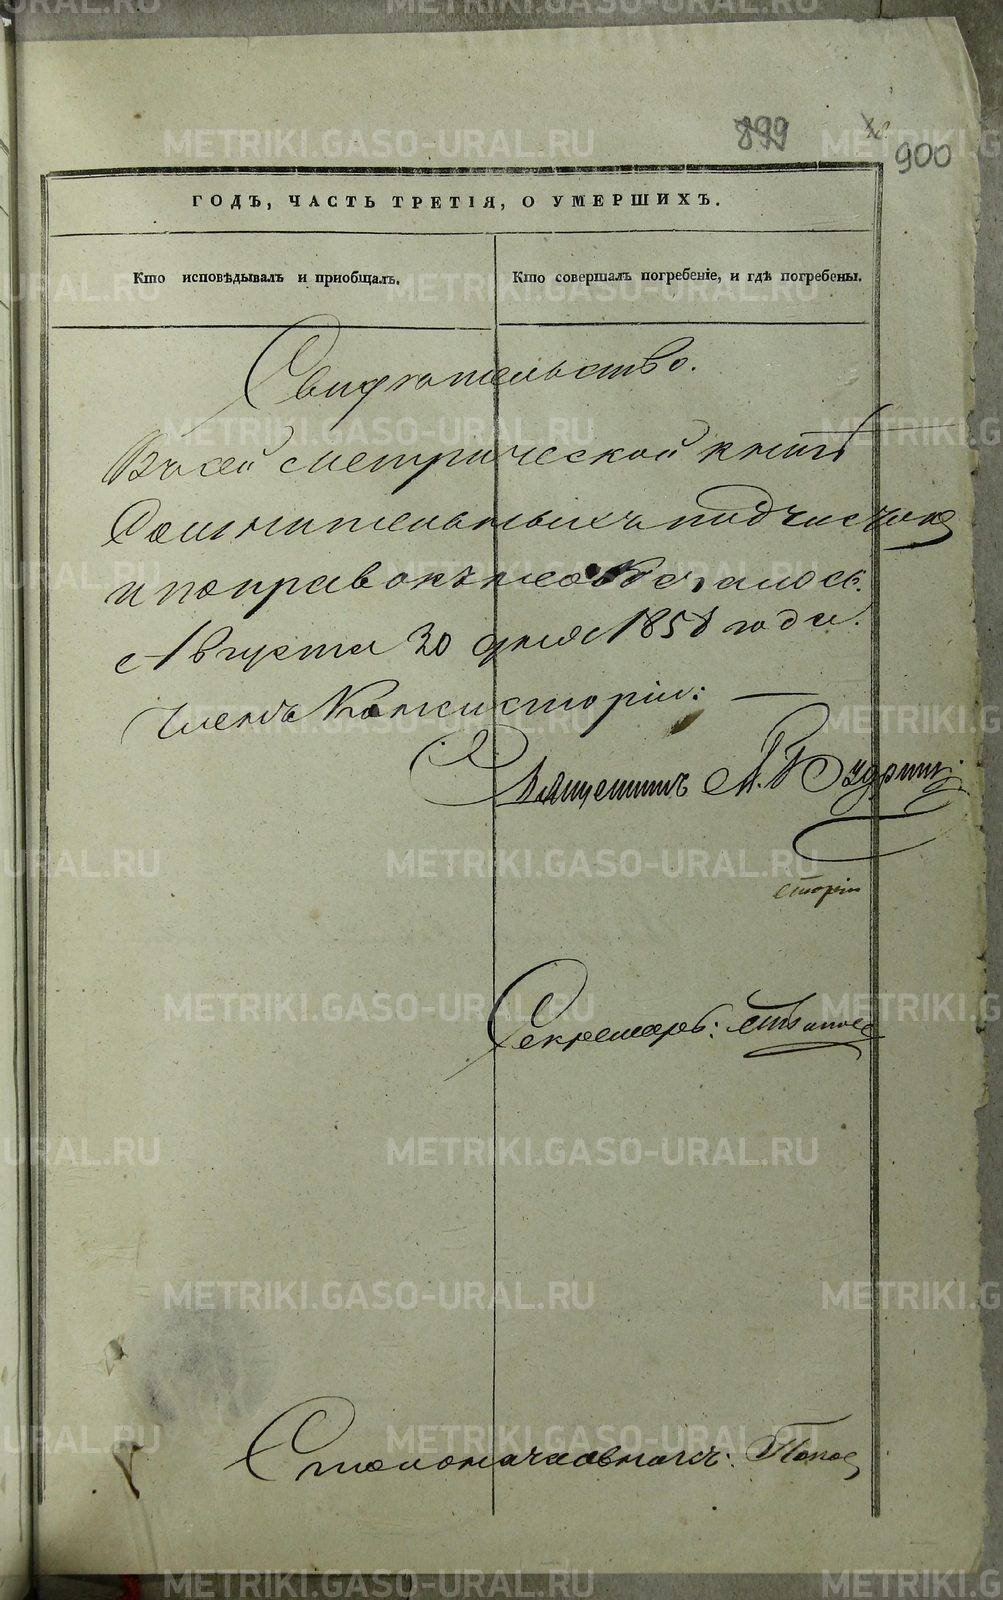 899
900
ГОДЪ, ЧАСТЬ ТРЕТІЯ, О УМЕРШИХЪ.
Кто исповѣдывалъ и приобщалъ.
Кто совершалъ погребеніе, и гдѣ погребены.
Свидѣтельство.
Въ сей метрической книгѣ
Сомнительныхъ подчистокъ
и поправокъ не оказалось.
Августа 30 дня 1858 года.
Членъ Консисторіи:
Священникъ
сторіи
Секретарь:
Столоначальникъ: Попов
METRIKI.GASO-URAL.RU